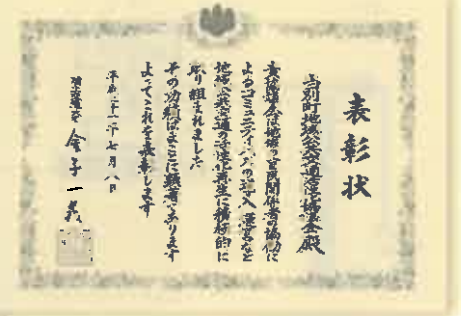 表彰状
当別町地域公共交通活性化協議会殿
貴協議会は地域の官民関係者の協働に
よるコミュニティバスの導入 運営など
地域公共交通の活性化再生に積極的に
取り組まれました
その功績はまことに顕著であります
よってこれを表彰します
平成二十一年七月八日
国土交通大臣 金子一義